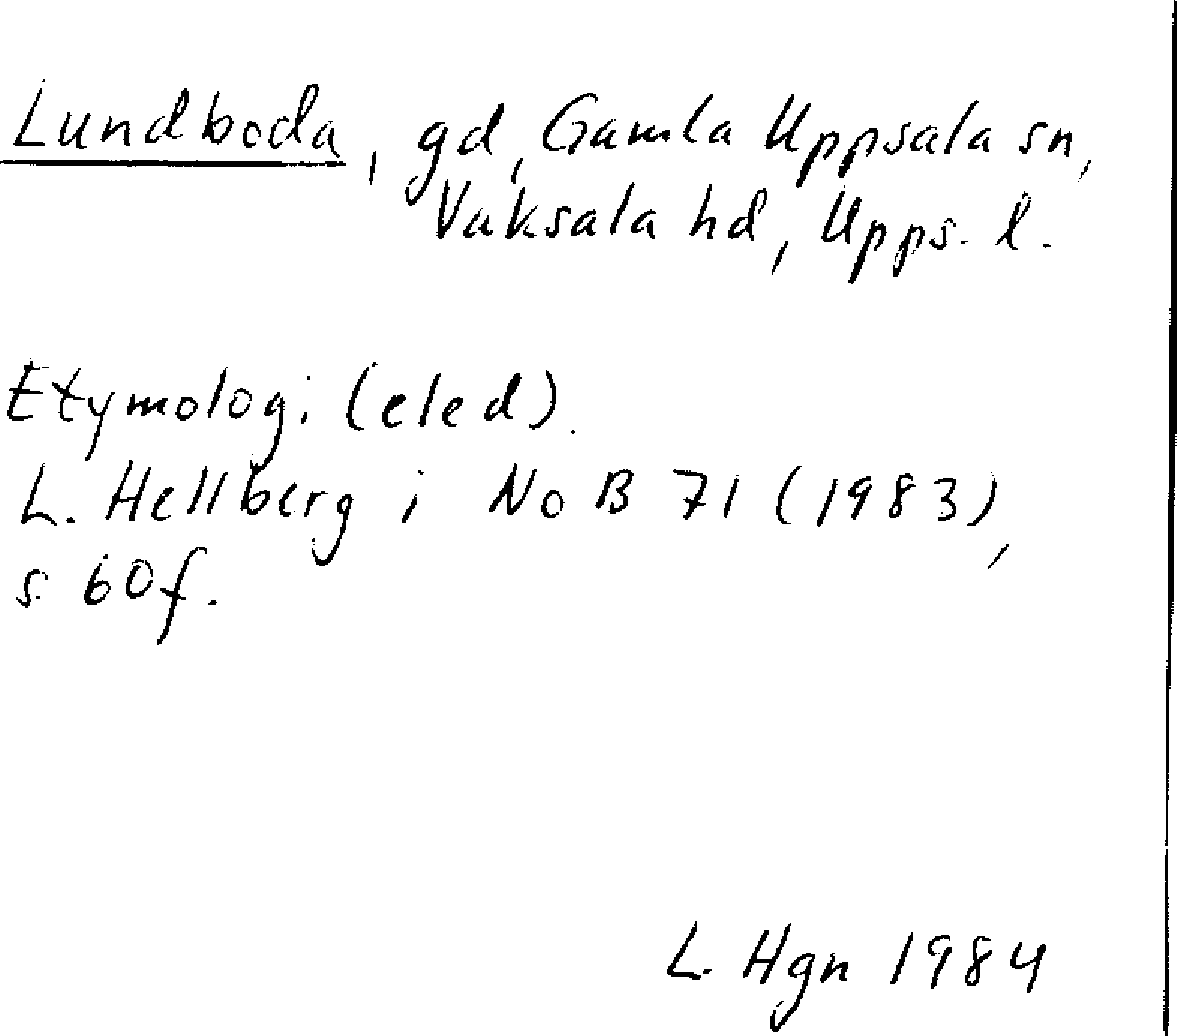 Lundboda, gd, Gamla Uppsala sn,
Vaksala hd, Upps. l.
Etymologi (eled).
L. Hellberg i NoB 71 (1983),
s 60f.
L. Hgn 1984